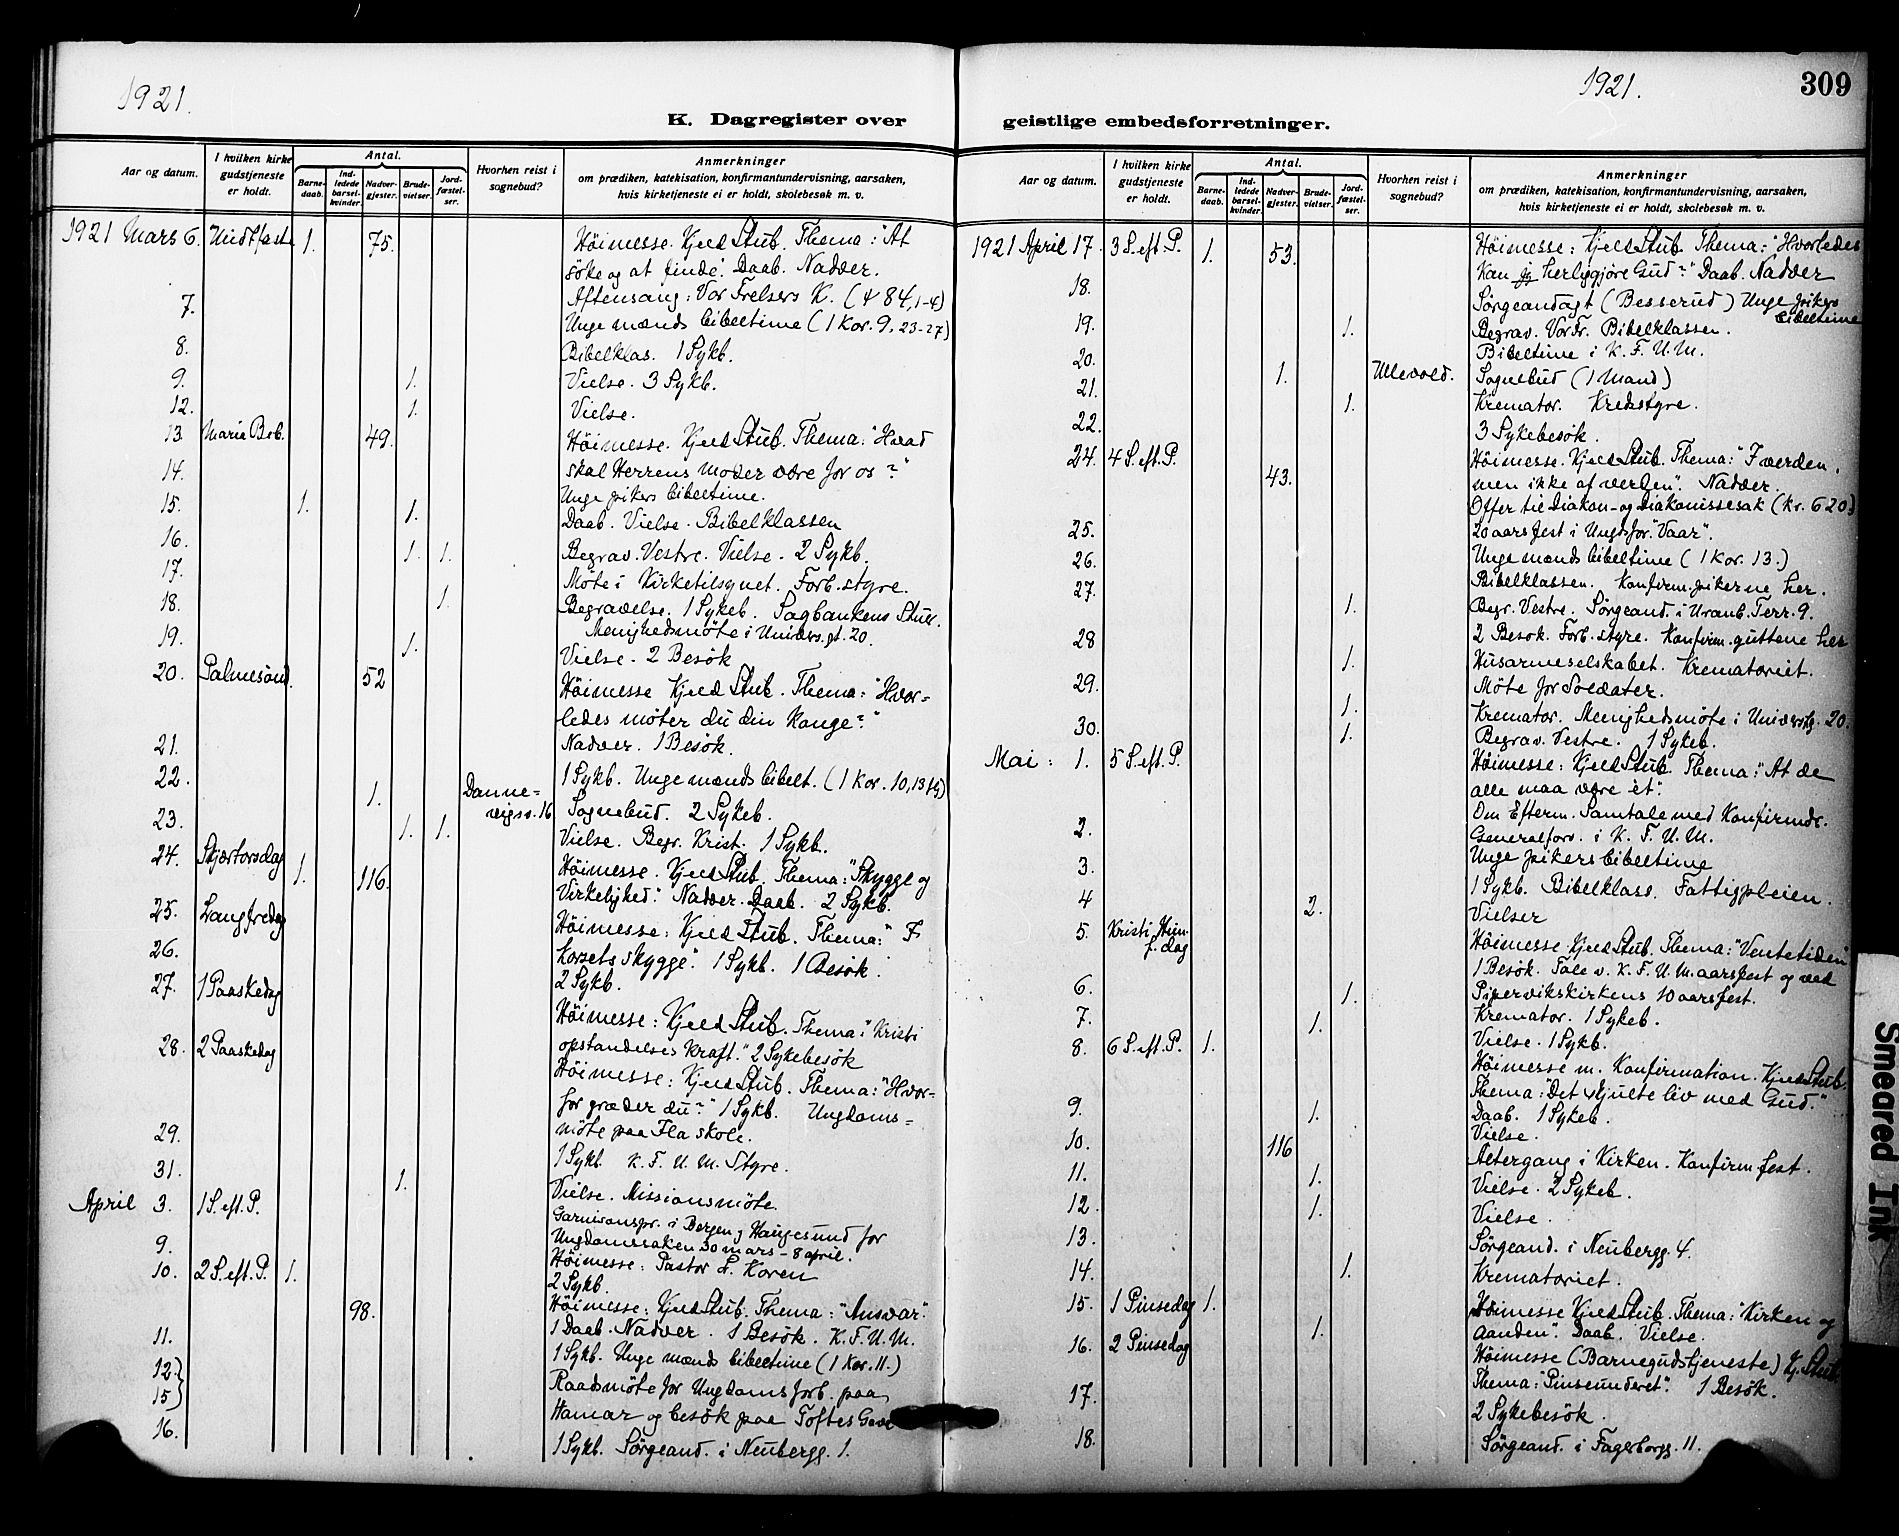 1921.
K. Dagregister over
Aar og datum.
I hvilken kirke gudstjeneste er holdt.
Antal.
Barnedaab.
Indledede barselkvinder.
Nadvergjester.
Brudevielser.
Jordfæstelser.
Hvorhen reist i sognebud?
Anmerkninger
om prædiken, katekisation, konfirmantundervisning, aarsaken,
hvis kirketjeneste ei er holdt, skolebesøk m. v.
1921 Mars 6. Midtfaste 1. 75. Höimesse. Kjeld Stub. Thema: "At
söke og at finde". Daab. Nadver.
Aftensang: Vor Frelsers K. (ψ 84,1-4)
7. Unge mænds bibeltime (1 Kor. 9, 23-27)
8. Bibelklas. 1 Sykb.
9. 1. Vielse. 3 Sykb.
12. 1. Vielse.
13. Mariæ Beb. 49. Höimesse. Kjeld Stub. Thema: "Hvad
skal Herrens moder være for os?"
14. Unge pikers bibeltime.
15. 1. 1. Daab. Vielse. Bibelklassen
16. 1. 1. Begrav. Vestre. Vielse. 2 Sykb.
17. Möte i Kirketilsynet. Forb. styre.
18. 1. Begravelse. 1 Sykeb. Sagbankens Stuer.
Menighedsmöte i Univers.gt. 20.
19. 1. Vielse. 2 Besök
20. Palmesönd. 52 Höimesse Kjeld Stub. Thema: "Hvor-
ledes möter du din konge?"
Nadver. 1 Besök.
21. 1 Sykb. Unge mænds bibelt. (1 Kor. 10, 13 fg)
22. 1. Danne-
vigsv. 16 Sognebud. 2 Sykeb.
23. 1. 1. Vielse. Begr. Krist. 1 Sykb.
24. Skjærtorsdag 1. 116. Höimesse. Kjeld Stub. Thema: "Skygge og
Virkelighed". Nadver. Daab. 2 Sykb.
25. Langfredag Höimesse: Kjeld Stub. Thema: "I
korsets skygge". 1 Sykb. 1 Besök.
26. 2 Sykb.
27. 1 Paaskedag Höimesse: Kjeld Stub. Thema: "Kristi
opstandelses kraft." 2 Sykebesök
28. 2 Paaskedag Höimesse: Kjeld Stub. Thema: "Hvor-
for græder du?" 1 Sykb. Ungdoms-
möte paa Fla skole.
29. 1 Sykb. K. F. U. M. Styre.
31. 1. Vielse. Missionsmöte.
April 3. 1 S. eft. P. Garnisonspr. i Bergen og Haugesund for
Ungdomssaken 30 mars - 8 april.
Höimesse: Pastor L. Koren
9. 2 Sykb.
10. 2 S. eft. P. 1. 98. Höimesse: Kjeld Stub. Thema: "Ansvar."
1 Daab. Nadver. 1 Besök. K. F. U. M.
11. 1 Sykb. Unge mænds bibeltime (1 Kor. 11.)
12.} 15} Raadsmöte for Ungdomsforb. paa
Hamar og besök paa Toftes Gave
16. 1 Sykb. Sörgeand. i Neubergg. 1.
1921.
309
geistlige embedsforretninger.
Aar og datum.
I hvilken kirke gudstjeneste er holdt.
Antal.
Barnedaab.
Indledede barselkvinder.
Nadvergjester.
Brudevielser.
Jordfæstelser.
Hvorhen reist i sognebud?
Anmerkninger
om prædiken, katekisation, konfirmantundervisning, aarsaken,
hvis kirketjeneste ei er holdt, skolebesøk m. v.
1921 April 17. 3 S. eft. P. 1. 53. Höimesse: Kjeld Stub. Thema: "Hvorledes
kan jeg herliggjöre Gud?" Daab. Nadver
18. Sørgeandagt (Besserud) Unge pikers
bibeltime
19. 1. Begrav. Vor Fr. Bibelklassen.
20. Bibeltime i K. F. U. M.
21. 1. Ullevold. Sognebud (1 Mand)
22. 1. Kremator. Kredsstyre.
3 Sykebesök.
24. 4 S. eft. P. 43. Höimesse. Kjeld Stub. Thema: "I verden,
men ikke af verden". Nadver.
Offer til Diakon- og Diakonissesak (kr. 620)
20 aarsfest i Ungdsfor. "Vaar".
25. Unge mænds bibeltime (1 Kor. 13.)
26. Bibelklassen. Konfirm.pikerne her.
27. 1. Begr. Vestre. Sörgeand. i Uranb. Terr. 9.
2 Besok. Forb. styre. Konfirm.guttene her
28 1. Husarmeselskabet. Krematoriet.
Möte for Soldater.
29. 1. Kremator. Menighedsmöte i Universg. 20.
30. 1. Begrav. Vestre. 1 Sykeb.
Mai: 1. 5 S. eft. P. Höimesse: Kjeld Stub. Thema: "At de
alle maa være et".
Om Efterm. Samtale med Konfirmdr.
2. Generalforv. i K. F. U. M.
Unge pikers bibeltime
3. 1 Sykb. Bibelklass. Fattigpleien.
4 2. Vielser
5. Kristi Him-
f. dag Höimesse. Kjeld Stub. Thema: "Ventetiden"
1 Besök. Tale v. K. F. U. M. aarsfest og ved
Pipervikskirkens 10 aarsfest.
6. 1. Kremator. 1 Sykeb.
7. 1. Vielse. 1 Sykb.
8. 6 S. eft. P. 1. Höimesse m. Konfirmation. Kjeld Stub.
Thema: "Det skjulte liv med Gud."
Daab. 1 Sykeb.
9. 1. Vielse.
10. 116 Altergang i Kirken. Konfirm.fest.
11. 1. Vielse. 2 Sykeb.
12. 1. Vielse.
13. Sörgeand. i Neubergg. 4.
14. 1. Krematoriet.
15. 1 Pinsedag 1. 1. Höimesse Kjeld Stub. Thema: "Kirken og
Aanden". Daab. Vielse.
16. 2 Pinsedag Höimesse (Barnegudstjeneste) Kj. Stub.
Thema: "Pinseunderet". 1 Besök.
17. 2 Sykebesök.
18. Sörgeand. i Fagerborgg. 11.
Smeared Ink